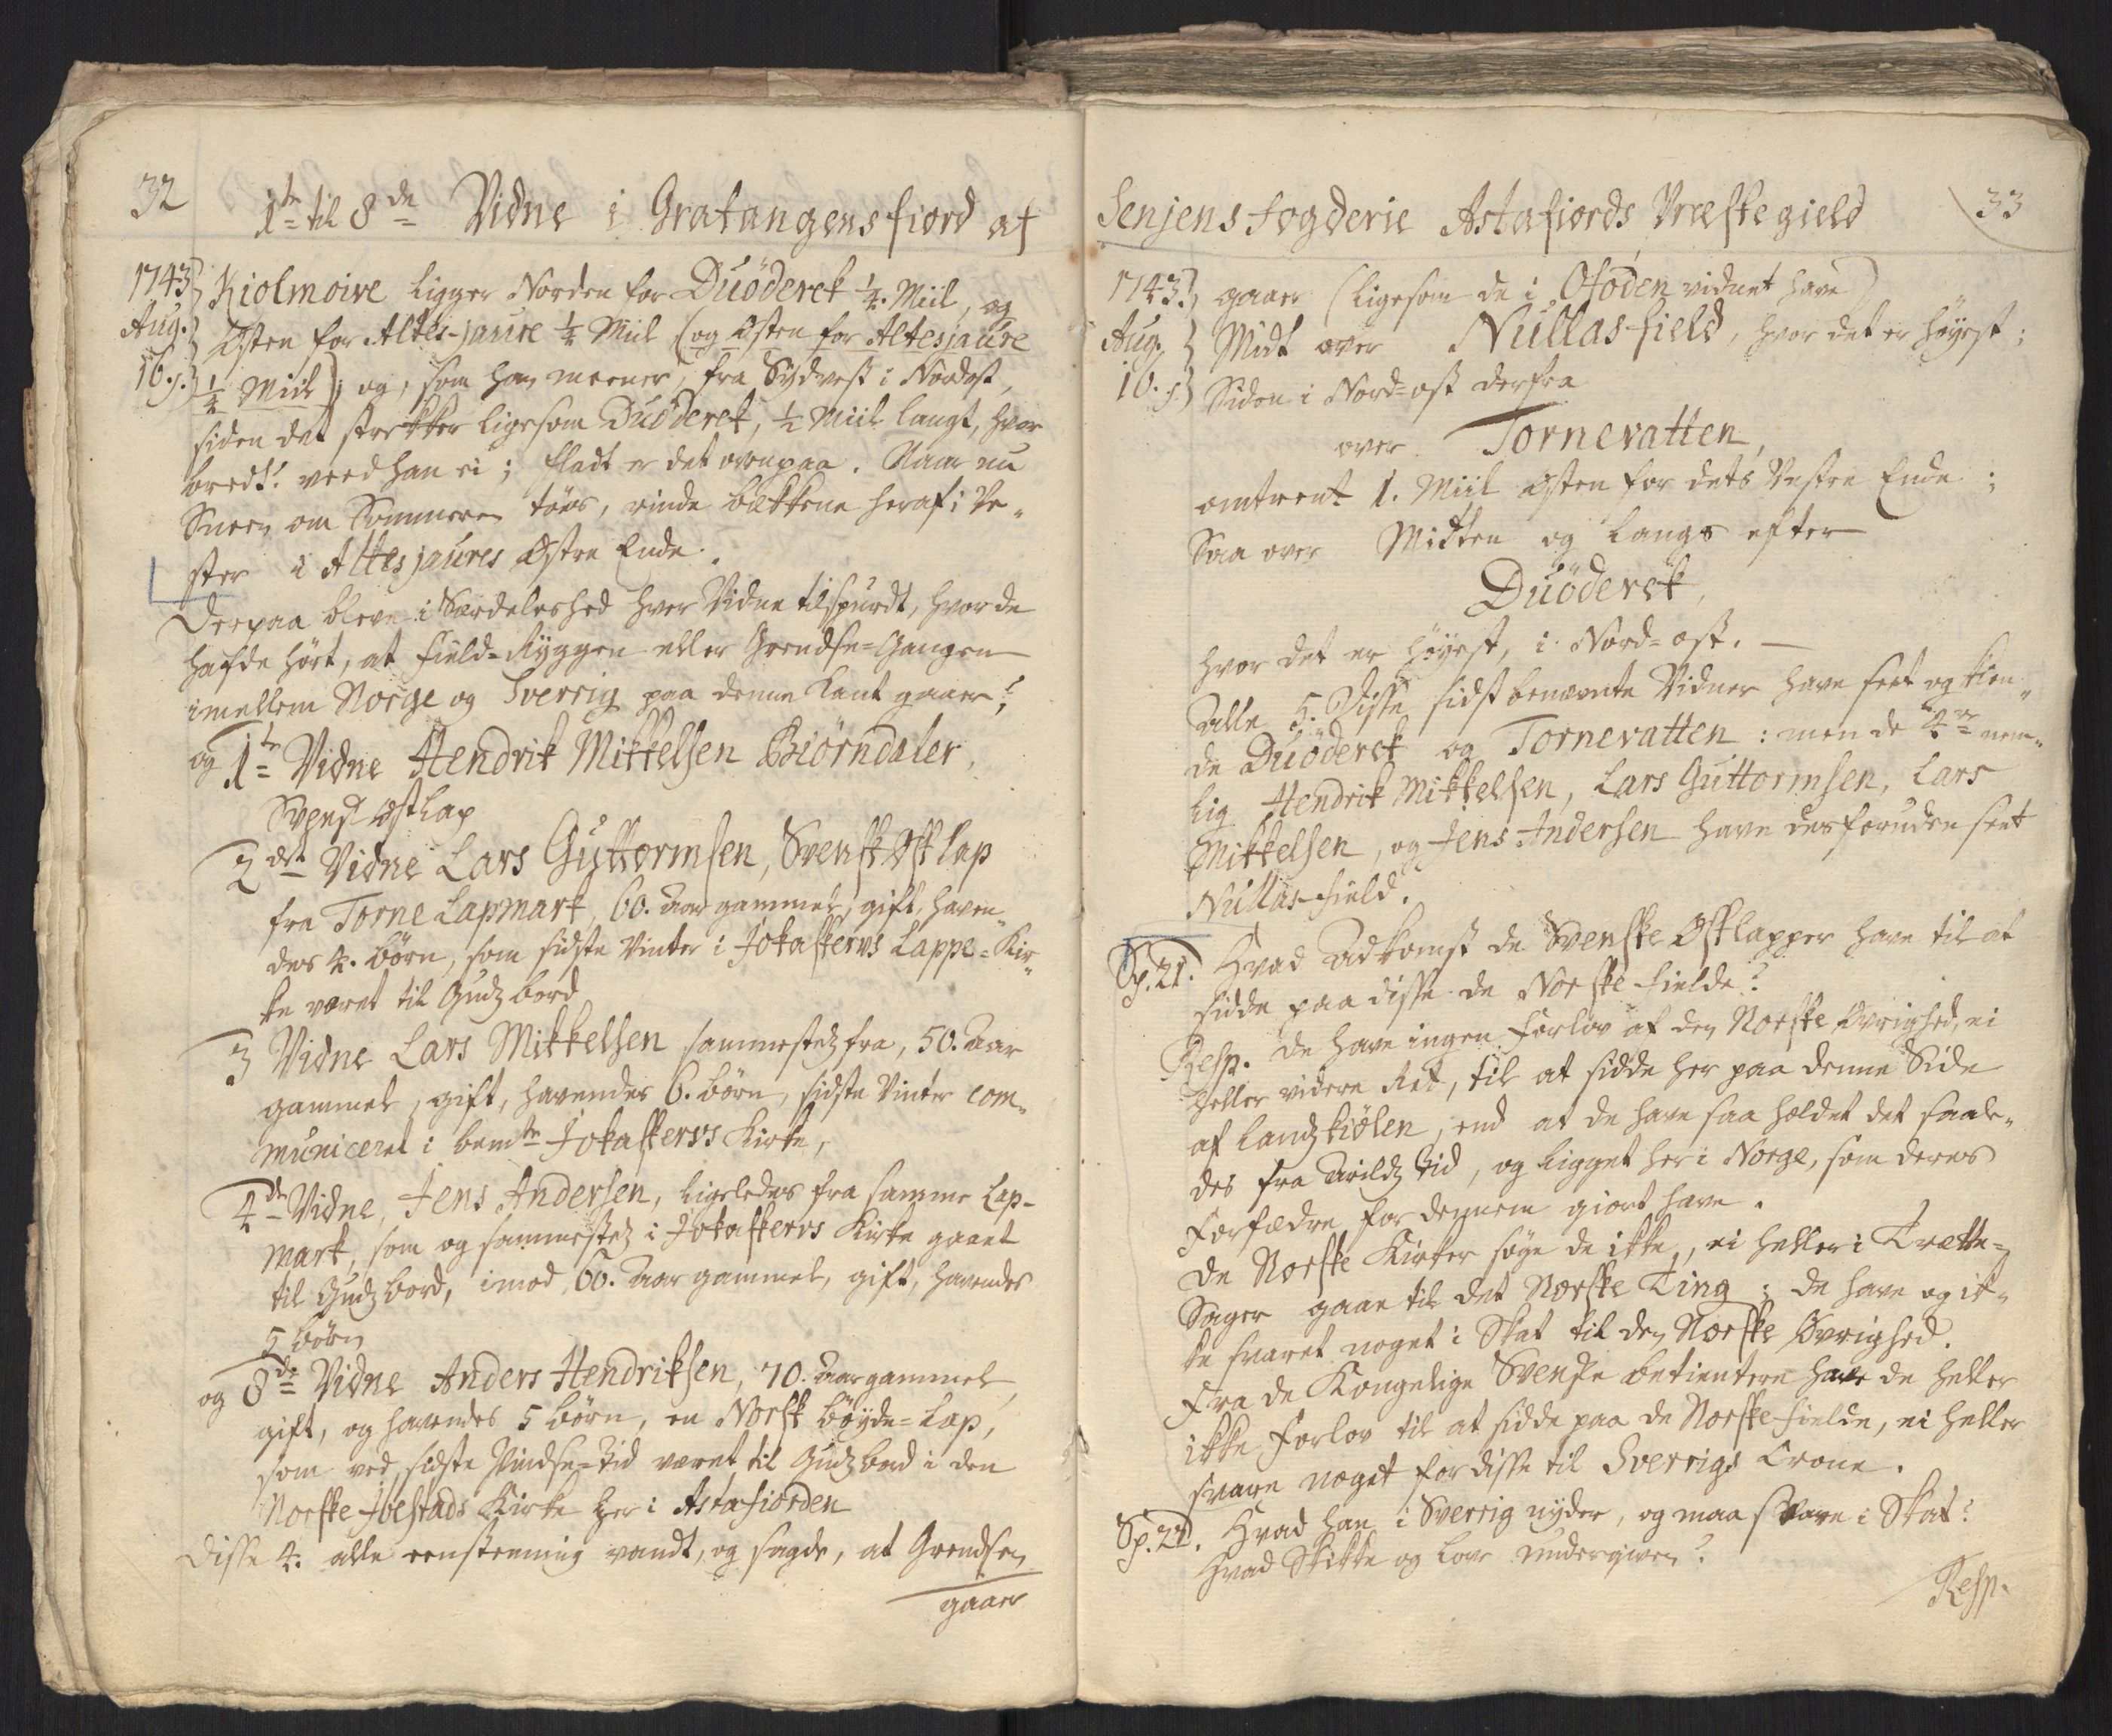 32
1te til 8de Vidne i Gratangens fiord af
1743
Aug.
16.s.
Kiolmoive ligger Norden for Duöderek ¼. Miil, og
Østen for Altes-jaure ½ Miil (og Østen for Altesjaure
½ Miil); og, som han meener, fra Sydvest i Nordost,
siden det strekker ligesom Duoderek, ½ Miil langt, hvor
bredt? veed han ei; fladt er det ovenpaa. Naar nu
Sneen om Sommeren töes, rinde bækkene heraf i Ve-
ster i Altesjaures Østre Ende.
Derpaa bleve i Særdeleshed hver Vidne tilspurdt, hvor de
hafde hört, at Field-Ryggen eller Grendse-Gangen
imellem Norge og Sverrig paa denne kant gaaer?
og 1te Vidne Hendrik Mikkelsen Biörndaler,
Svensk Østlap
2det Vidne Lars Guttormsen, Svensk Østlap
fra Torne Lapmark, 60. Aar gammel, gift, haven-
des 4. börn, som sidste Vinter i Jokaskervs Lappe-Kir-
ke været til Gudz bord
3 Vidne Lars Mikkelsen sammestedz fra, 50. Aar
gammel, gift, havendes 6. börn, sidste Vinter com-
municeret i bemte Jokaskervs Kirke,
4de Vidne, Jens Andersen, ligeledes fra samme Lap-
mark, som og sammestedz i Jokaskervs Kirke gaaet
til Gudz bord, imod 60. Aar gammel, gift, havendes
5 börn
og 8de Vidne Anders Hendriksen, 70. Aar gammel,
gift, og havendes 5 börn, en Norsk böyde-Lap,
som ved sidste Pindse-Tid været til Gudz bord i den
Norske Ibestads Kirke her i Astafiorden
Disse 4. alle eenstemmig vandt, og sagde, at Grendsen
gaaer
Senjens Fogderie Astafiords Præstegield
33
1743.
Aug.
10.s.
gaaer (ligesom de i Ofoden vidnet have)
Midt over Nullas-field, hvor det er höyest;
Siden i Nord-ost derfra
over Tornevatten,
omtrent 1. Miil Østen for dets Vestre Ende;
Saa over Midten og langs efter
Duöderek,
hvor det er höyest, i Nord-ost.
Alle 5. Disse sidst benævnte Vidner have seet og kien-
de Duöderek og Tornevatten: men de 4re nem-
lig Hendrik Mikkelsen, Lars Guttormsen, Lars
Mikkelsen, og Jens Andersen have desforuden seet
Nullas-field.
Sp. 21. Hvad Adkomst de Svenske Østlapper have til at
sidde paa disse de Norske Fielde?
Resp. De have ingen Forlov af den Norske Øvrighed, ei
heller videre Ret, til at sidde her paa denne Side
af Landzkiölen, end at de have saa holdet det saale-
des fra Arildz Tid, og ligget her i Norge, som deres
Forfædre for dennem giort have.
De Norske Kirker söge de ikke, ei heller i Trætte-
Sager gaae til det Norske Ting; de have og ik-
ke svaret noget i Skat til den Norske Øvrighed.
Fra de Kongelige Svenske betientere have de heller
ikke Forlov til at sidde paa de Norske Fielde, ei heller
svare noget for disse til Sverrigs Crone.
Sp. 22. Hvad han i Sverrig nyder, og maa svare i Skat?
Hvad Skikke og Love undergiven?
Resp.